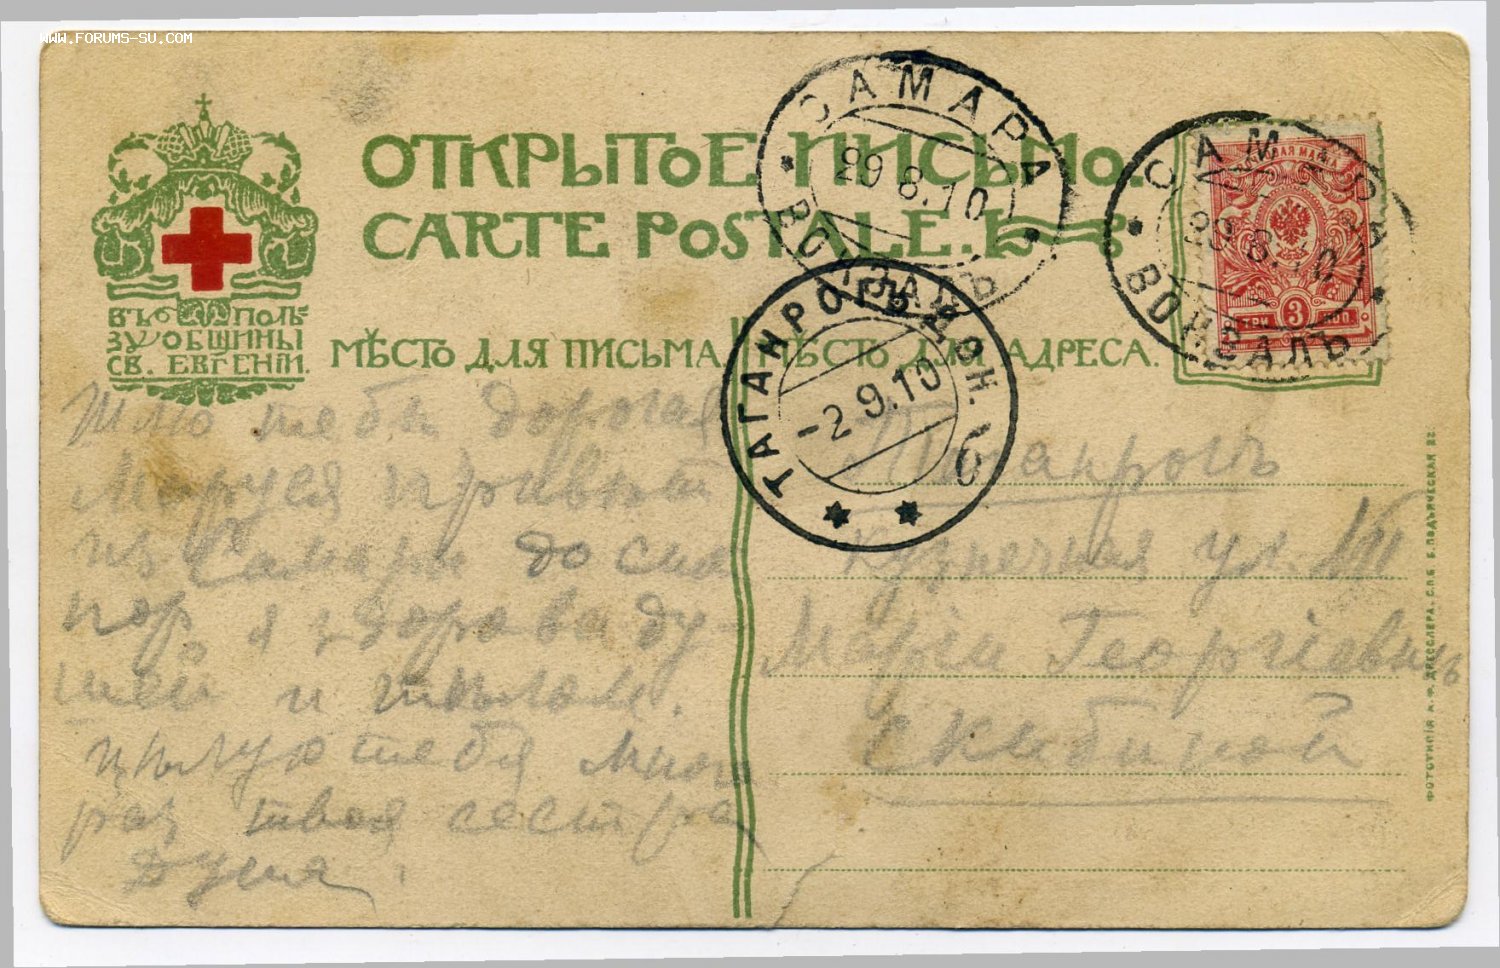 WWW.FORUMS-SU.COM
ОТКРЫТОЕ ПИСЬМО.
CARTE POSTALE.
ВЪ ПОЛЬ-
ЗУ ОБЩИНЫ
СВ. ЕВГЕНІИ.
МѢСТО ДЛЯ ПИСЬМА
МѢСТО ДЛЯ АДРЕСА.
САМАРА
29 8.10
ВОКЗАЛЪ
САМАРА
29.8.10
ВОКЗАЛЪ
МАРКА
ТРИ 3 КОП.
ТАГАНРОГЪ ДОН. О
-2.9.10
Шлю тебѣ дорогая
Маруся привѣтъ
из Самары до сихъ
пор я здорова ду-
шей и тѣлом.
цѣлую тебя много
раз твоя сестра
Дуня.
Таганрогъ
Кузнечная ул. №
Маріи Георгіевнѣ
Скибиной
ФОТОТИПІЯ А. Ф. ДРЕССЛЕРА. С.П.Б. Б. ПОДЬЯЧЕСКАЯ 22